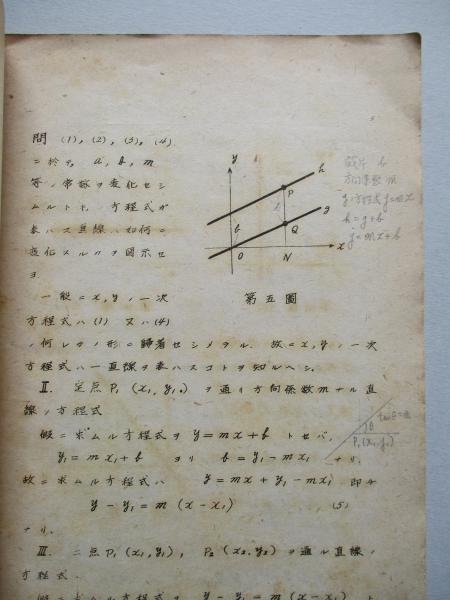 問 (1), (2), (3), (4)
ニ於テ, a, b, m
等ノ常数ヲ変化セシ
ムルトキ, 方程式ガ
表ハス直線ハ如何ニ
変化スルカヲ図示セ
ヨ
y
h
P
g
b
b
Q
O
N
x
第五圖
截片 b
方向係数 m
gノ方程式 y=mx
h = g+b
y = mx+b
一般ニ x, y ノ一次
方程式ハ (1) 又ハ (4)
ノ何レカノ形ニ歸着セシメラル. 故ニ x, y ノ一次
方程式ハ一直線ヲ表ハスコトヲ知ルヘシ.
Ⅱ. 定点 P₁ (x₁, y₁) ヲ通リ方向係数 m ナル直
線ノ方程式
假ニ求ムル方程式ヲ y = mx + b トセバ,
y₁ = mx₁ + b ヨリ b = y₁ - mx₁ ナリ.
故ニ求ムル方程式ハ y = mx + y₁ - mx₁ 即チ
y - y₁ = m (x - x₁) (5)
ナリ.
tanθ=
θ
P₁(x₁, y₁)
Ⅲ. 二点 P₁ (x₁, y₁), P₂ (x₂, y₂) ヲ通ル直線ノ
方程式.
假ニ求ムル方程式ヲ y - y₁ = m (x - x₁) ト